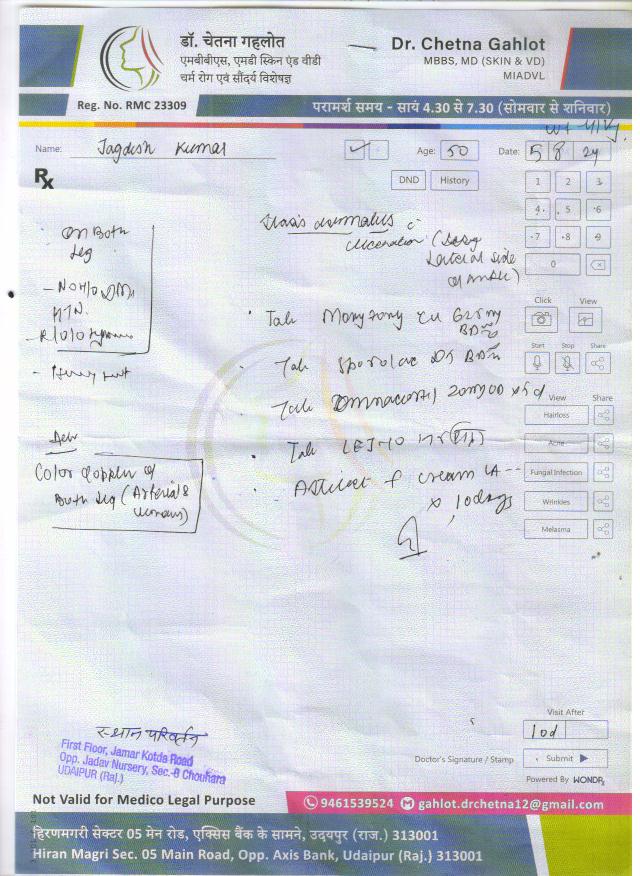 डॉ. चेतना गहलोत
एमबीबीएस, एमडी स्किन एंड वीडी
चर्म रोग एवं सौंदर्य विशेषज्ञ
Dr. Chetna Gahlot
MBBS, MD (SKIN & VD)
MIADVL
Reg. No. RMC 23309
परामर्श समय - सायं 4.30 से 7.30 (सोमवार से शनिवार)
Name: Jagdish Kumar
Age: 50
Date: 5 8 24
Rx
DND History
1 2 3
4 5 6
7 8 9
0
Click View
Start Stop Share
View Share
Hairloss
Acne
Fungal Infection
Wrinkles
Melasma
On Both
leg
HTN.
Adv
Color doppler of
Both leg (Arterial &
Stasis dermatitis c
ulceration (
Lateral side
of ankle)
Tab 625mg
BD
Tab Sporolac DS BD
Tab Omnacortil 20mg OD x 5d
Tab
cream LA
x 10days
स्थान परिवर्तन
First Floor, Jamar Kotda Road
Opp. Jadav Nursery, Sec.-8 Chouraha
UDAIPUR (Raj.)
Visit After
10d
Doctor's Signature / Stamp
Submit
Powered By WONDRx
Not Valid for Medico Legal Purpose
9461539524 gahlot.drchetna12@gmail.com
हिरणमगरी सेक्टर 05 मेन रोड, एक्सिस बैंक के सामने, उदयपुर (राज.) 313001
Hiran Magri Sec. 05 Main Road, Opp. Axis Bank, Udaipur (Raj.) 313001